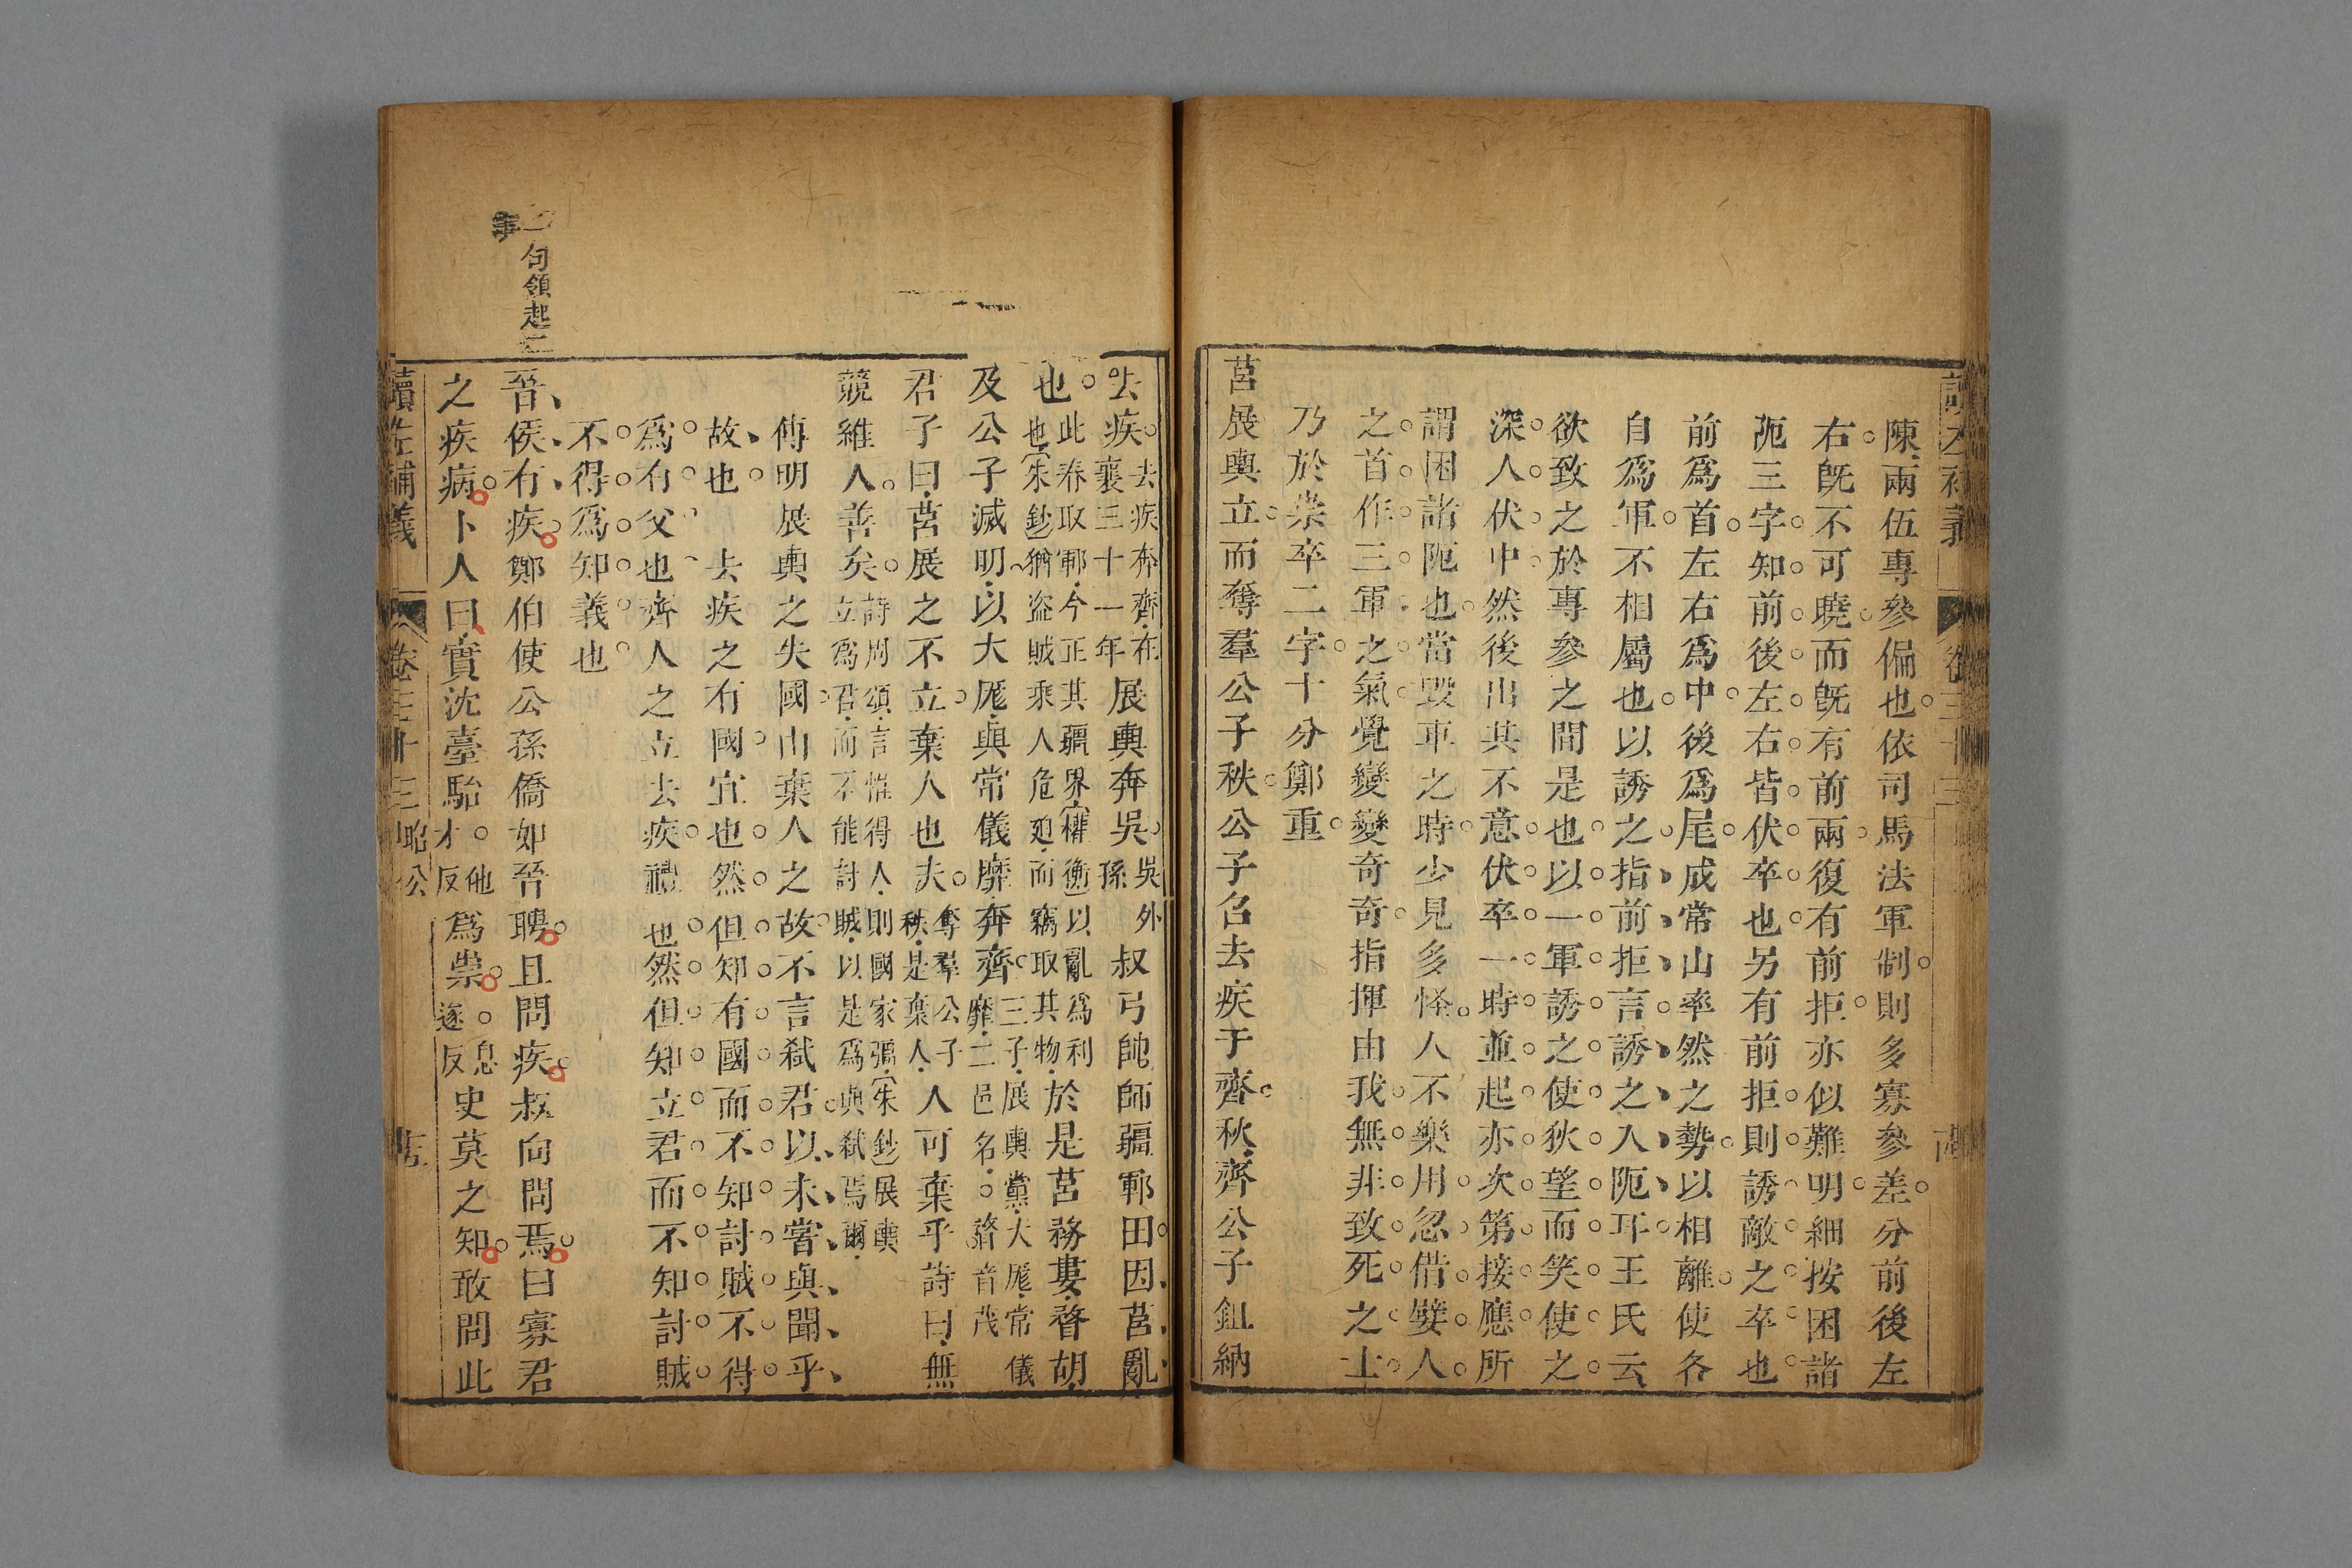 陳兩伍專參偏也依司馬法軍制則多寡參差分前後左
右旣不可曉而旣有前兩復有前拒亦似難明細按困諸
阨三字知前後左右皆伏卒也另有前拒則誘敵之卒也
前爲首左右爲中後爲尾成常山率然之勢以相離使各
自爲軍不相屬也以誘之指前拒言誘之入阨耳王氏云
欲致之於專參之間是也以一軍誘之使狄望而笑使之
深人伏中然後出其不意伏卒一時並起亦次第接應所
謂困諸阨也當毀車之時少見多怪人不樂用忽借嬖人
之首作三軍之氣覺變變奇奇指揮由我無非致死之士
乃於崇卒二字十分鄭重
莒展輿立而奪羣公子秩公子召去疾于齊秋齊公子鉏納
去疾
去疾奔齊在
襄三十一年
展輿奔吳
吳外
孫
叔弓帥師疆鄆田因莒亂
也
此春取鄆今正其疆界權衡以亂爲利
也朱鈔猶盗賊乘人危廹而竊取其物
於是莒務婁瞀胡
及公子滅明以大厖與常儀靡奔齊
三子展輿黨大厖常儀
靡二邑名○瞀音茂
君子曰莒展之不立棄人也夫
奪羣公子
秩是棄人
人可棄乎詩曰無
競維人善矣
詩周頌言惟得人則國家彊朱鈔展輿
立爲君而不能討賊以是爲與弑焉爾
傳明展輿之失國由棄人之故不言弑君以未嘗與聞乎
故也　去疾之有國宜也然但知有國而不知討賊不得
爲有父也齊人之立去疾禮也然但知立君而不知討賊
不得爲知義也
晉侯有疾鄭伯使公孫僑如晉聘且問疾叔向問焉曰寡君
之疾病卜人曰實沈臺駘
○他
才反
爲祟
○息
遂反
史莫之知敢問此
句領起二
事
讀左補義
卷三十三
昭公